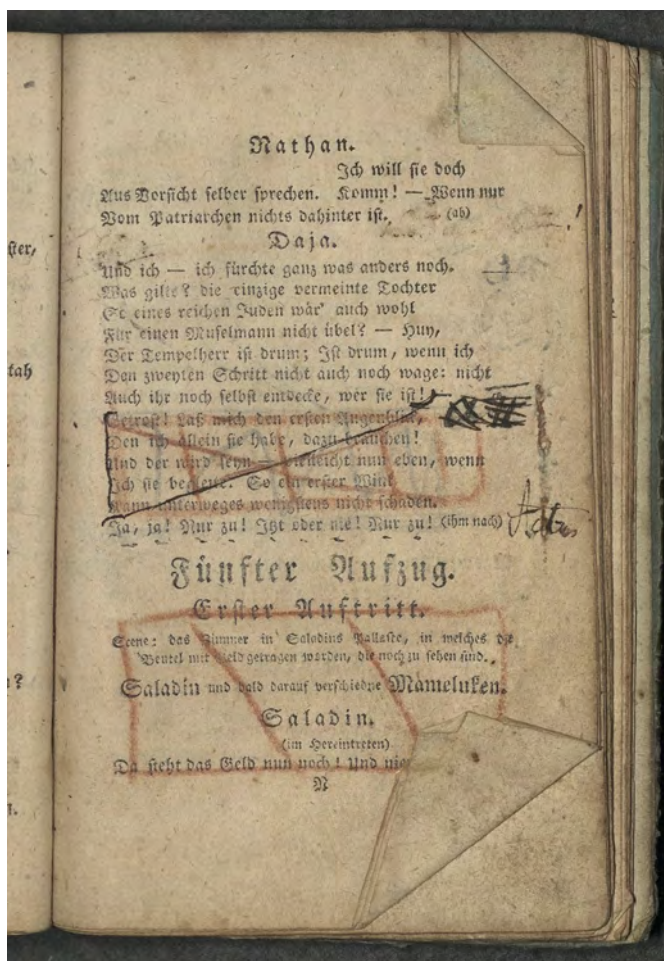 ster,
tah
?
Nathan.
Ich will sie doch
Aus Vorsicht selber sprechen. Komm! — Wenn nur
Vom Patriarchen nichts dahinter ist. (ab)
Daja.
Und ich — ich fürchte ganz was anders noch.
Was gilts? die einzige vermeinte Tochter
So eines reichen Juden wär' auch wohl
Für einen Muselmann nicht übel? — Huy,
Der Tempelherr ist drum; Ist drum, wenn ich
Den zweyten Schritt nicht auch noch wage: nicht
Auch ihr noch selbst entdecke, wer sie ist!
Getrost! Laß mich den ersten Augenblick,
Den ich allein sie habe, dazu brauchen!
Und der wird seyn — vielleicht nun eben, wenn
Ich sie begleite. So ein erster Wink
Kann unterweges wenigstens nicht schaden.
Ja, ja! Nur zu! Itzt oder nie! Nur zu! (ihm nach)
Fünfter Aufzug.
Erster Auftritt.
Scene: das Zimmer in Saladins Pallaste, in welches die
Beutel mit Geld getragen worden, die noch zu sehen sind.
Saladin und bald darauf verschiedne Mameluken.
Saladin.
(im Hereintreten)
Da steht das Geld nun noch! Und
N